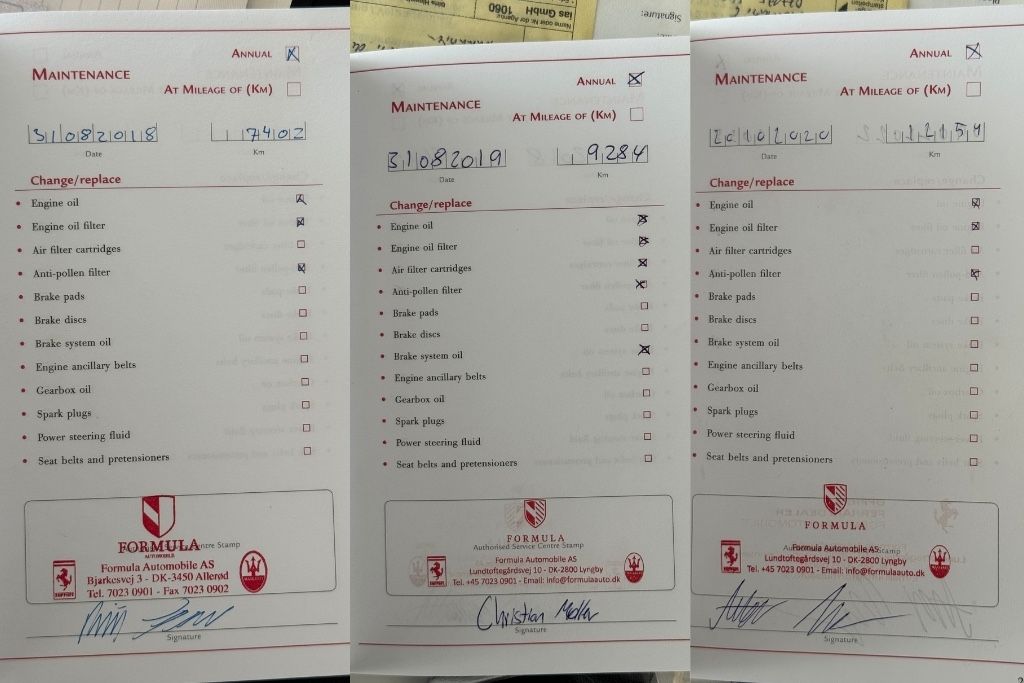 Name oder Nr. der Agentur
ias GmbH 1060
Signature:
ANNUAL
MAINTENANCE
AT MILEAGE OF (KM)
31082018 7402
Date Km
Change/replace
Engine oil
Engine oil filter
Air filter cartridges
Anti-pollen filter
Brake pads
Brake discs
Brake system oil
Engine ancillary belts
Gearbox oil
Spark plugs
Power steering fluid
Seat belts and pretensioners
FORMULA
AUTOMOBILE
Authorised Service Centre Stamp
Formula Automobile AS
Bjarkesvej 3 - DK-3450 Allerød
Tel. 7023 0901 - Fax 7023 0902
Ferrari
MASERATI
Signature
ANNUAL
MAINTENANCE
AT MILEAGE OF (KM)
31082019 9284
Date Km
Change/replace
Engine oil
Engine oil filter
Air filter cartridges
Anti-pollen filter
Brake pads
Brake discs
Brake system oil
Engine ancillary belts
Gearbox oil
Spark plugs
Power steering fluid
Seat belts and pretensioners
FORMULA
Authorised Service Centre Stamp
Formula Automobile AS
Lundtoftegårdsvej 10 - DK-2800 Lyngby
Tel. +45 7023 0901 - Email: info@formulaauto.dk
Christian
Signature
ANNUAL
MAINTENANCE
AT MILEAGE OF (KM)
20102020 12154
Date Km
Change/replace
Engine oil
Engine oil filter
Air filter cartridges
Anti-pollen filter
Brake pads
Brake discs
Brake system oil
Engine ancillary belts
Gearbox oil
Spark plugs
Power steering fluid
Seat belts and pretensioners
FORMULA
Authorised Service Centre Stamp
Formula Automobile AS
Lundtoftegårdsvej 10 - DK-2800 Lyngby
Tel. +45 7023 0901 - Email: info@formulaauto.dk
Signature